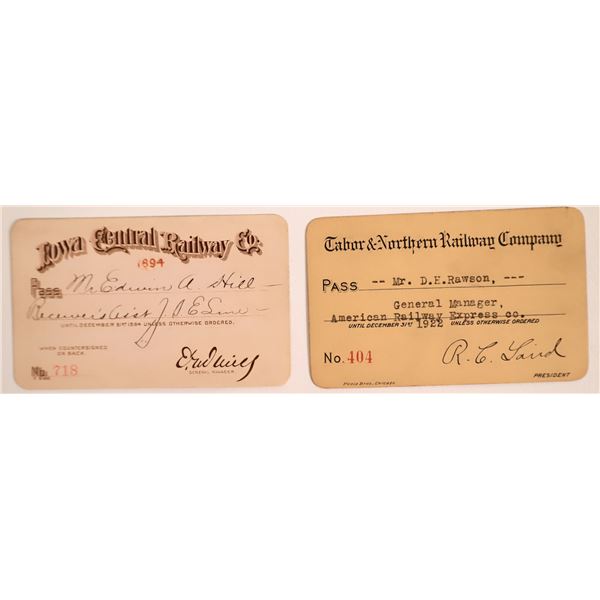 Iowa Central Railway Co.
1894
Pass Mr. Edwin A. Hill
Receiver's Asst
UNTIL DECEMBER 31ST 1894 UNLESS OTHERWISE ORDERED.
WHEN COUNTERSIGNED
ON BACK.
No. 718
GENERAL MANAGER
Tabor & Northern Railway Company
PASS -- Mr. D.H.Rawson, ---
General Manager,
American Railway Express co.
UNTIL DECEMBER 31ST 1922 UNLESS OTHERWISE ORDERED
No. 404 R. C. Laird
PRESIDENT
POOLE BROS. CHICAGO.